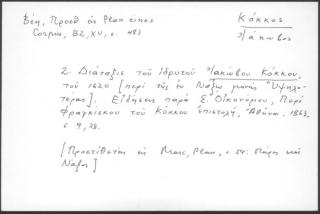 Βέη, Προσθ. εἰς Plan eines
Κόκκος
Corpus, BZ, XV, σ. 483
Ἰάκωβος
2. Διάταξις τοῦ ἱδρυτοῦ Ἰακώβου Κόκκου,
τοῦ 1620 [περὶ τῆς ἐν Νάξῳ μονῆς "Ὑψηλο-
τέρας]. Εἰδήσεις παρὰ Σ. Οἰκονόμου, Περὶ
Φραγκίσκου τοῦ Κόκκου ἐπιστολή, Ἀθῆναι, 1863,
σ. 9, 28.
[Προστίθεται εἰς Marc, Plan, σ. 54: Πάρος καὶ
Νάξος]